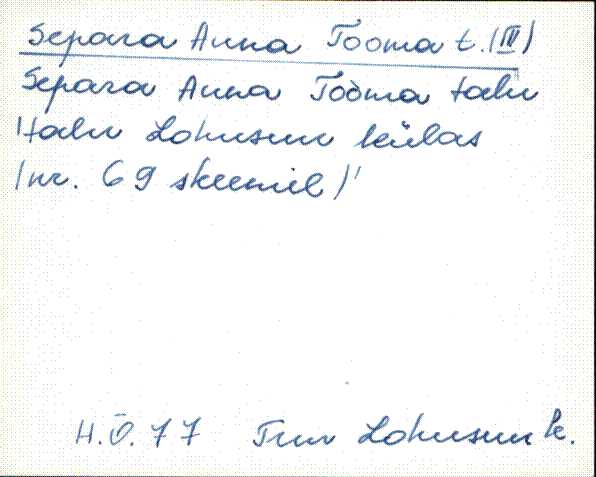 Separa Anna Tooma t. (III)
Separa Anna Toòma talu
Talu Lohusuu külas
(nr. 69 skeemil)
H.Õ. 77 Trm Lohusuu k.